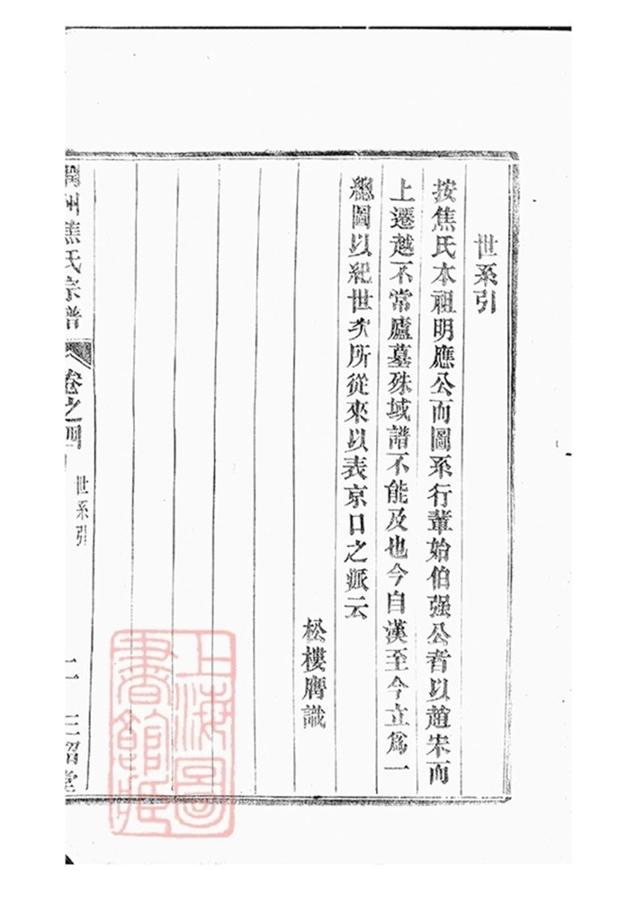 世系引
按焦氏本祖明應公而圖系行輩始伯强公者以趙宋而
上遷越不常廬墓殊域譜不能及也今自漢至今立爲一
總圖以紀世次所從來以表京口之派云
松樓膺識
潤州焦氏宗譜
卷之四
世系引
二
三詔堂
上海圖
書館藏